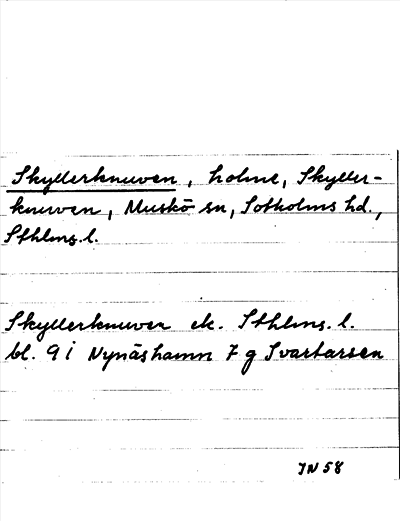 Skyllerknuven, holme, Skyller-
knuven, Muskö sn, Sotholms hd.,
Sthlms. l.
Skyllerknuven ek. Sthlms. l.
bl. 9 i Nynäshamn 7 g Svartarsen
JN 58